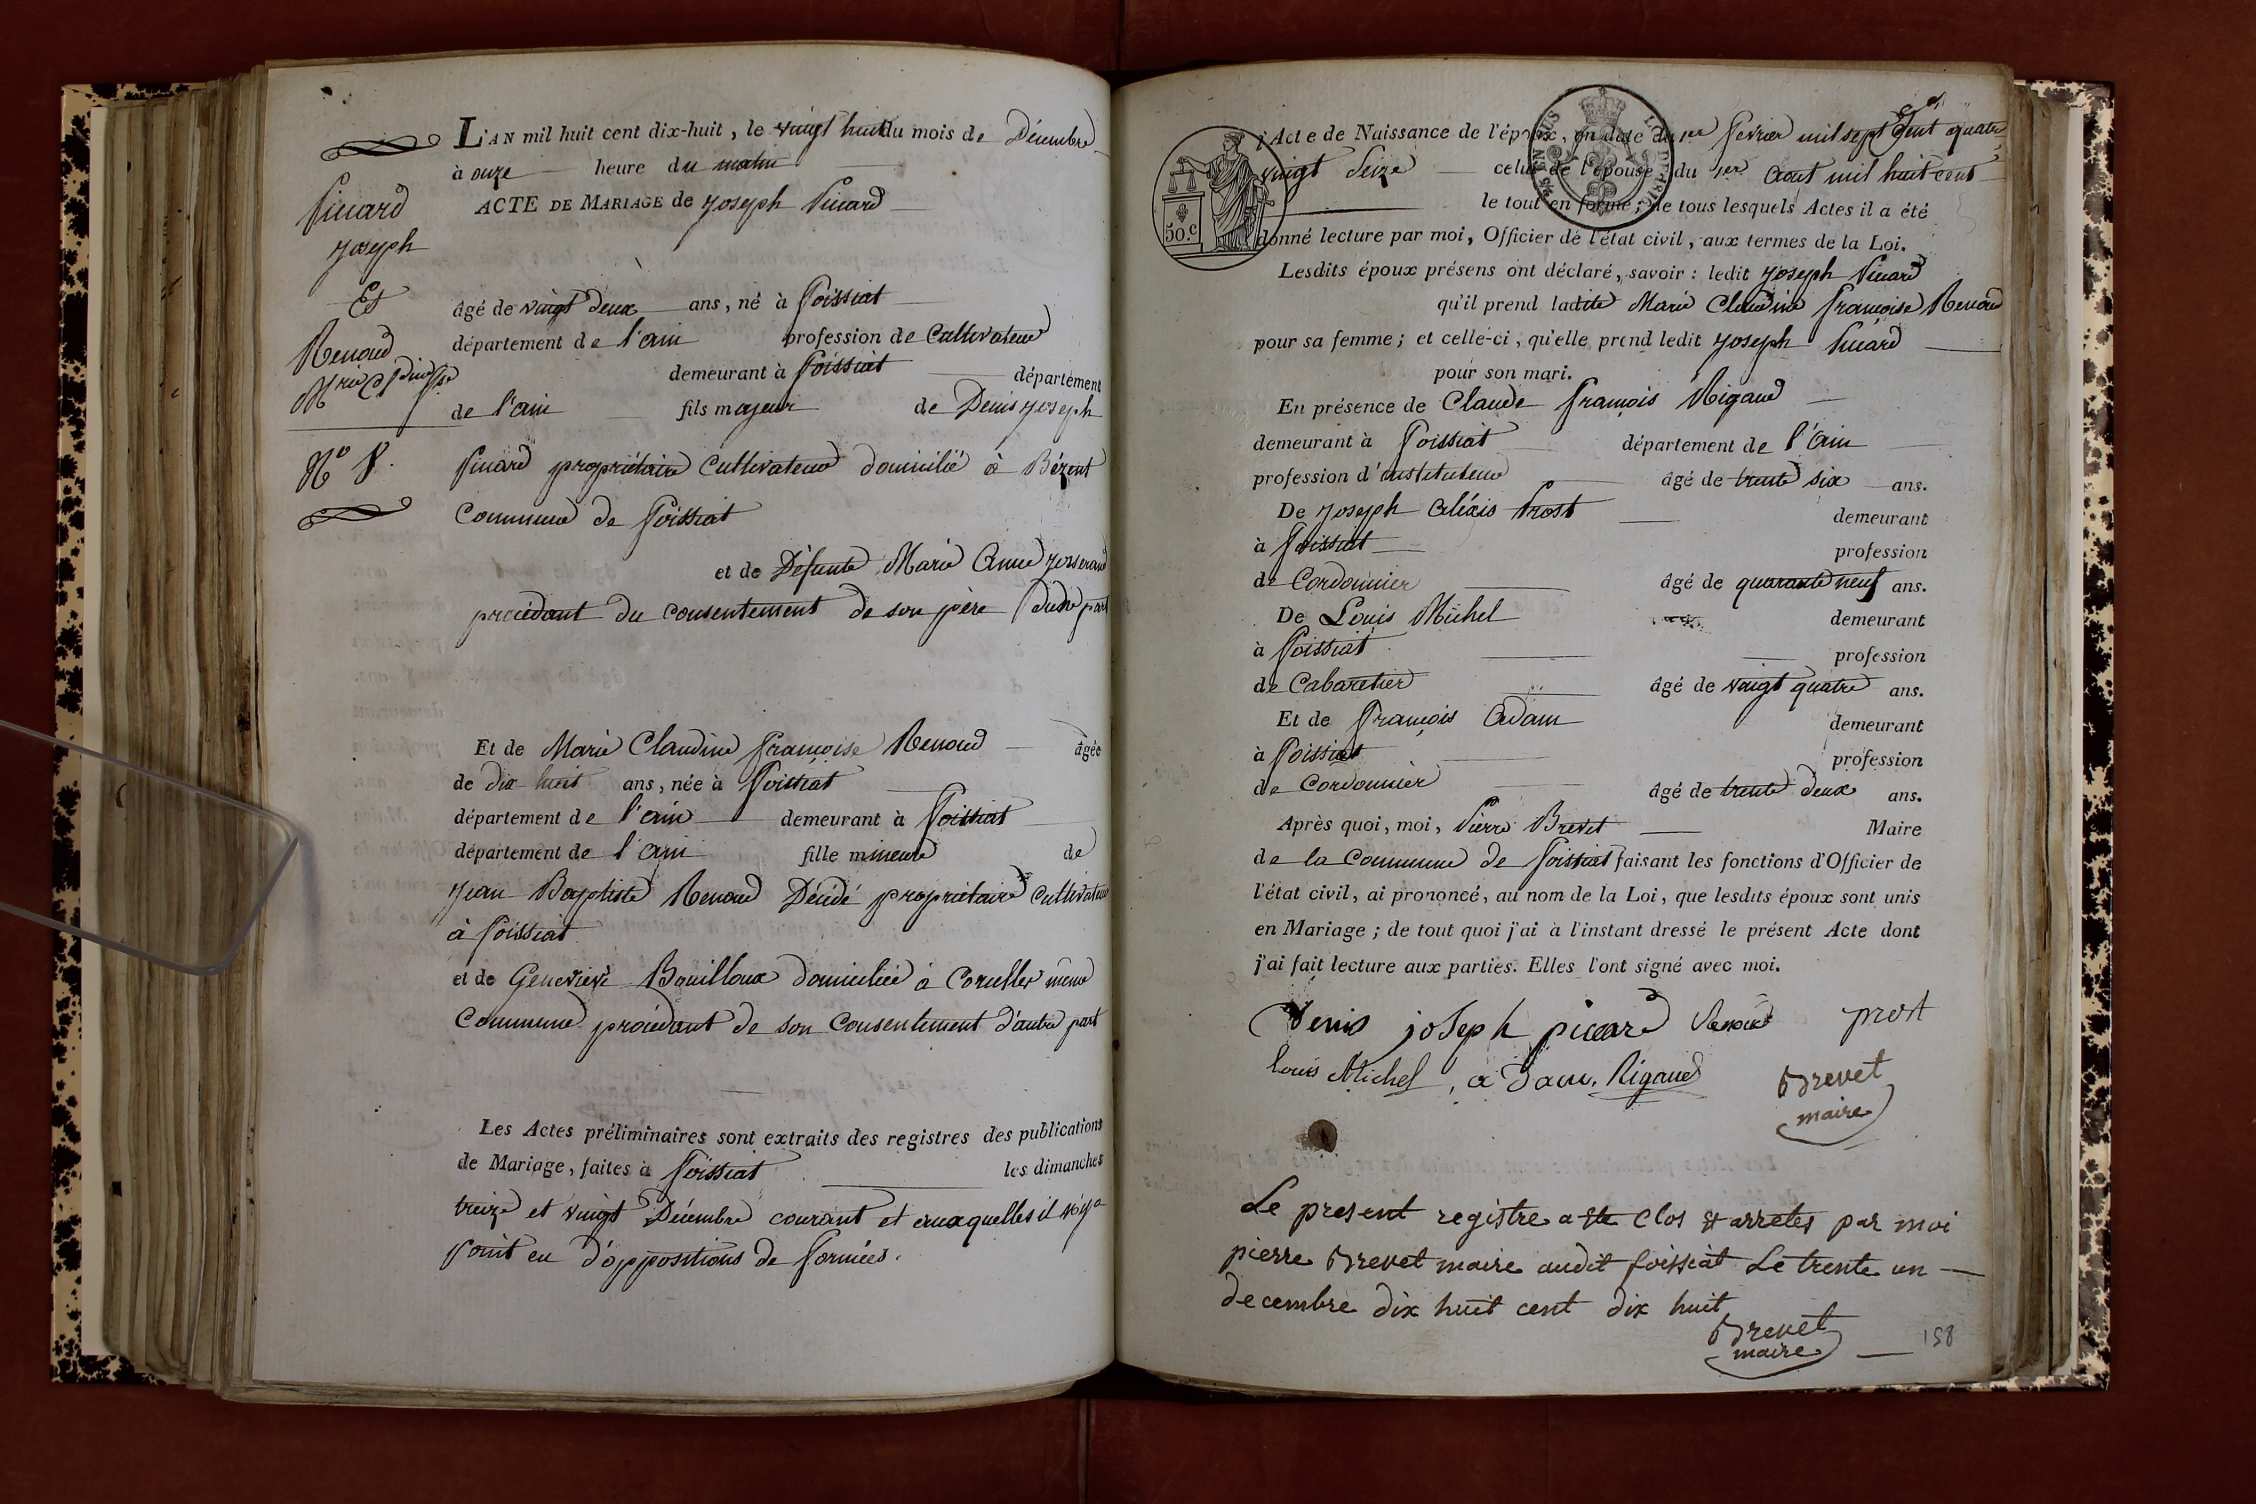 L'AN mil huit cent dix-huit, le vingt huit du mois de Décembre
à onze heure du matin
ACTE DE MARIAGE de Joseph Picard
âgé de vingt deux ans, né à foissiat
département de l'ain profession de Cultivateur
demeurant à foissiat département
de l'ain fils majeur de Denis joseph
Picard propriétaire Cultivateur domicilié à Bézent
Commune de foissiat
et de Défunte Marie Anne
procédant du consentement de son père d'une part
Picard
Joseph
Et
Renoud
Mrie Cldine fse
No 8.
Et de Marie Claudine françoise Renoud âgée
de dix huit ans, née à foissiat
département de l'ain demeurant à foissiat
département de l'ain fille mineure de
Jean Baptiste Renoud Décédé propriétaire Cultivateur
à foissiat
et de Genevieve Bouilloux domiciliée à Corcelles même
Commune procédant de son Consentement d'autre part
Les Actes préliminaires sont extraits des registres des publications
de Mariage, faites à foissiat les dimanches
treize et vingt Décembre courant et auxquelles il n'y a
point eu d'oppositions de formées.
50.c
l'Acte de Naissance de l'époux, en date du 1er fevrier mil sept Cent quatre
vingt Seize celui de l'épouse du 1er Aout mil huit cent
le tout en forme; de tous lesquels Actes il a été
donné lecture par moi, Officier de l'état civil, aux termes de la Loi.
Lesdits époux présens ont déclaré, savoir : ledit Joseph Picard
qu'il prend ladite Marie Claudine françoise Renoud
pour sa femme; et celle-ci, qu'elle prend ledit Joseph Picard
pour son mari.
En présence de Claude françois Rigaud
demeurant à foissiat département de l'Ain
profession d'instituteur âgé de trente six ans.
De Joseph Aléxis Prost demeurant
à foissiat profession
de Cordonnier âgé de quarante neuf ans.
De Louis Michel demeurant
à foissiat profession
de Cabaretier âgé de vingt quatre ans.
Et de françois Adam demeurant
à foissiat profession
de Cordonnier âgé de trente deux ans.
Après quoi, moi, Pierre Brevet Maire
de la Commune de foissiat faisant les fonctions d'Officier de
l'état civil, ai prononcé, au nom de la Loi, que lesdits époux sont unis
en Mariage; de tout quoi j'ai à l'instant dressé le présent Acte dont
j'ai fait lecture aux parties. Elles l'ont signé avec moi.
Denis joseph picard Renoud prost
Louis Michel, adam, Rigaud
Brevet
maire
Le present registre a ete Clos et arretes par moi
pierre Brevet maire audit foissiat Le trente un
decembre dix huit cent dix huit
Brevet
maire
158